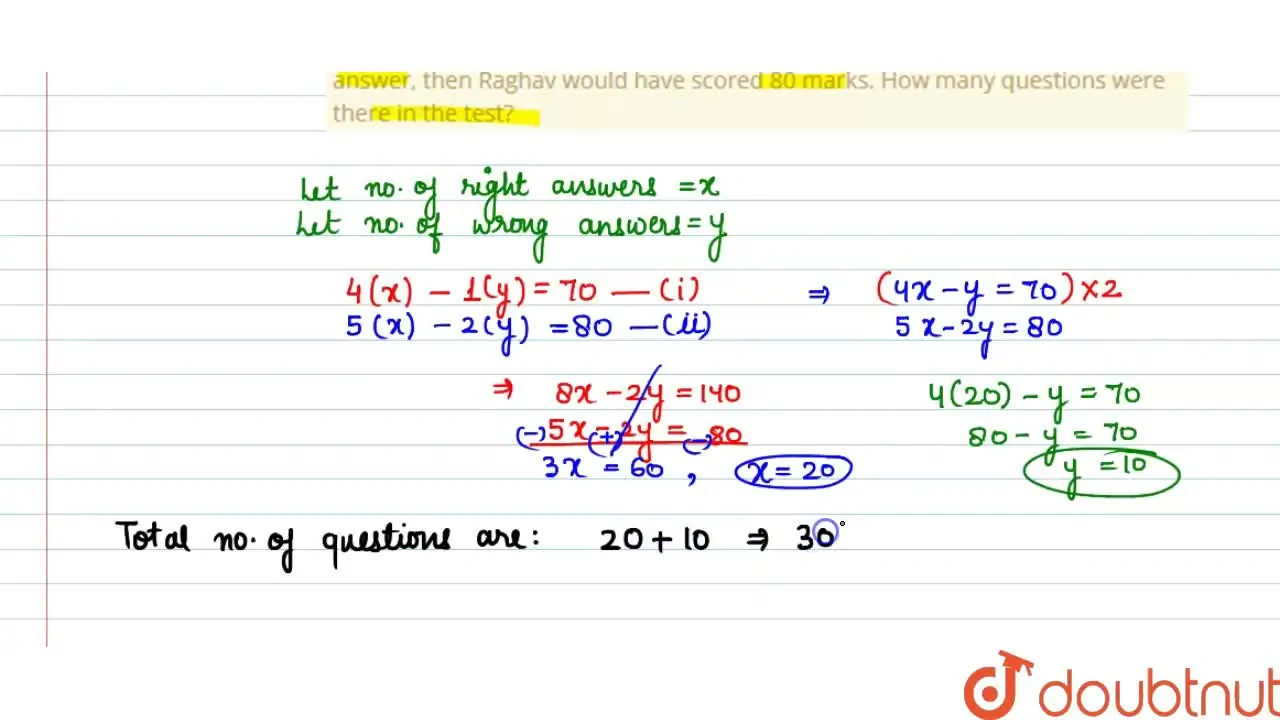 answer, then Raghav would have scored 80 marks. How many questions were
there in the test?
Let no. of right answers = x
Let no. of wrong answers = y
4(x) - 1(y) = 70 — (i) ⇒ (4x - y = 70) × 2
5(x) - 2(y) = 80 — (ii) 5x - 2y = 80
⇒ 8x - 2y = 140 4(20) - y = 70
(-) 5x (+) - 2y = (-) 80 80 - y = 70
3x = 60 , x = 20 y = 10
Total no. of questions are: 20 + 10 ⇒ 30
doubtnut